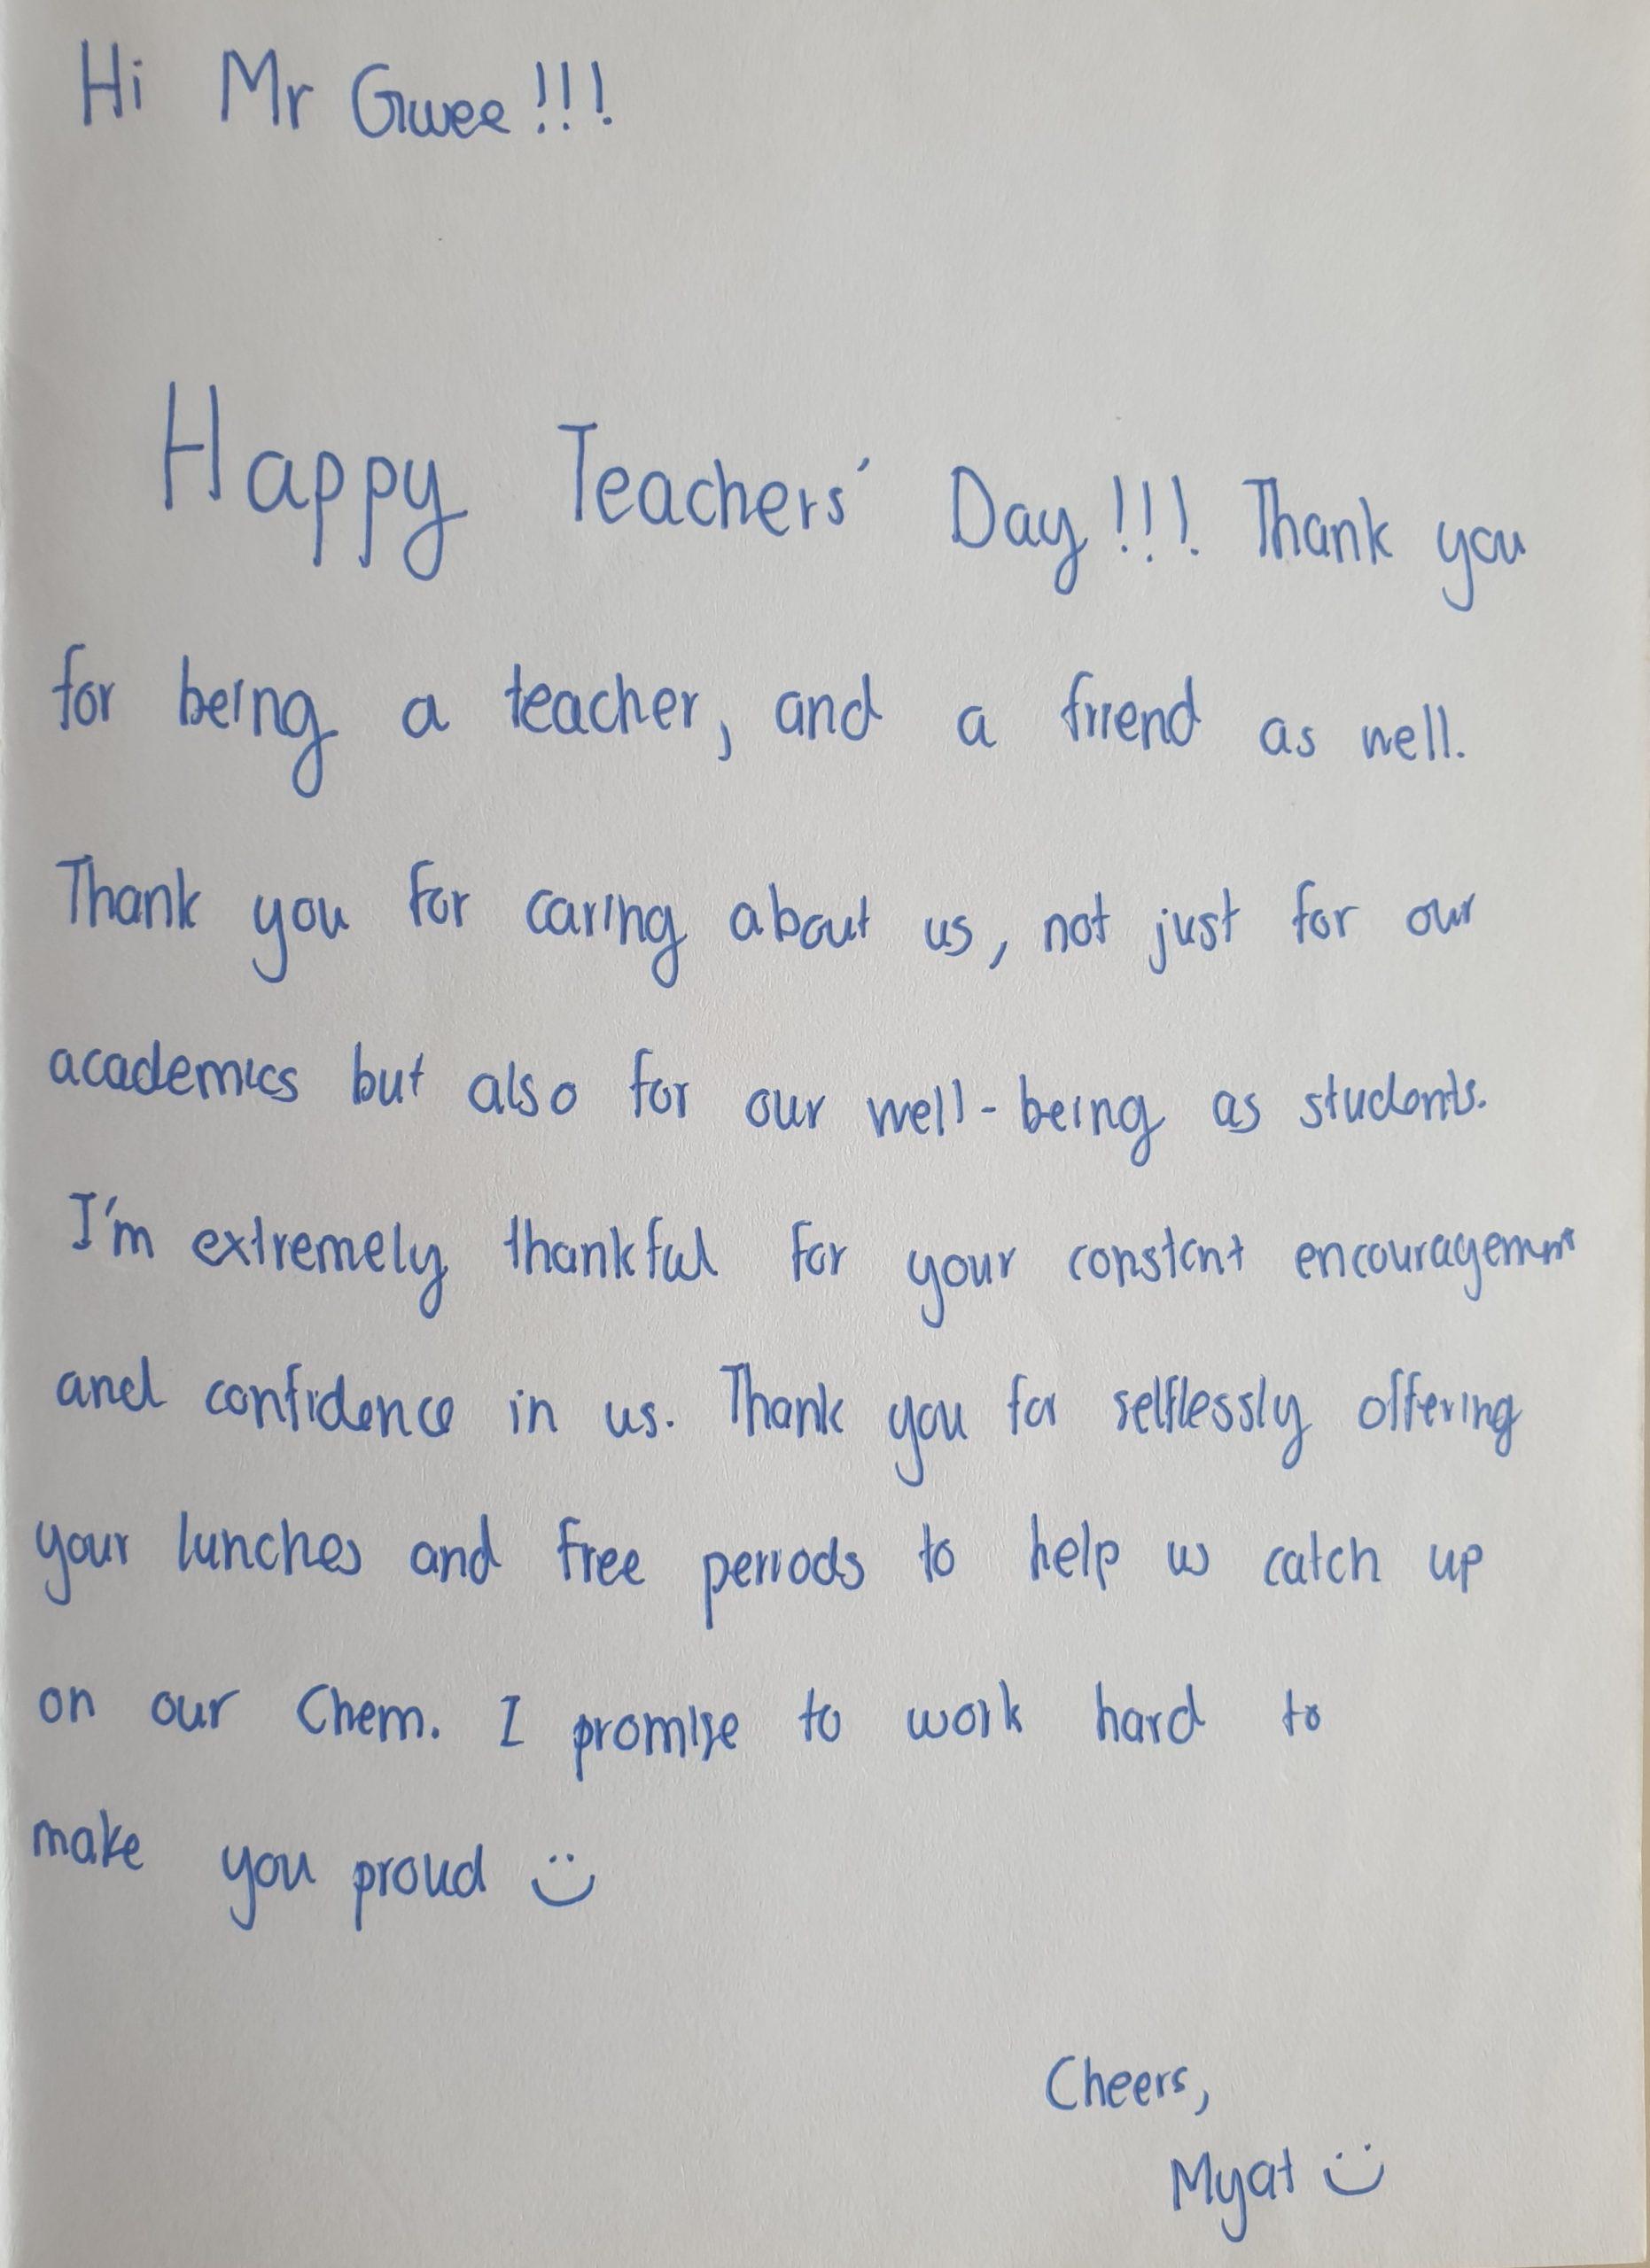 Hi Mr Gwee!!!
Happy Teachers' Day!!! Thank you
for being a teacher, and a friend as well.
Thank you for caring about us, not just for our
academics but also for our well-being as students.
I'm extremely thankful for your constant encouragement
and confidence in us. Thank you for selflessly offering
your lunches and free periods to help us catch up
on our Chem. I promise to work hard to
make you proud :)
Cheers,
Myat :)